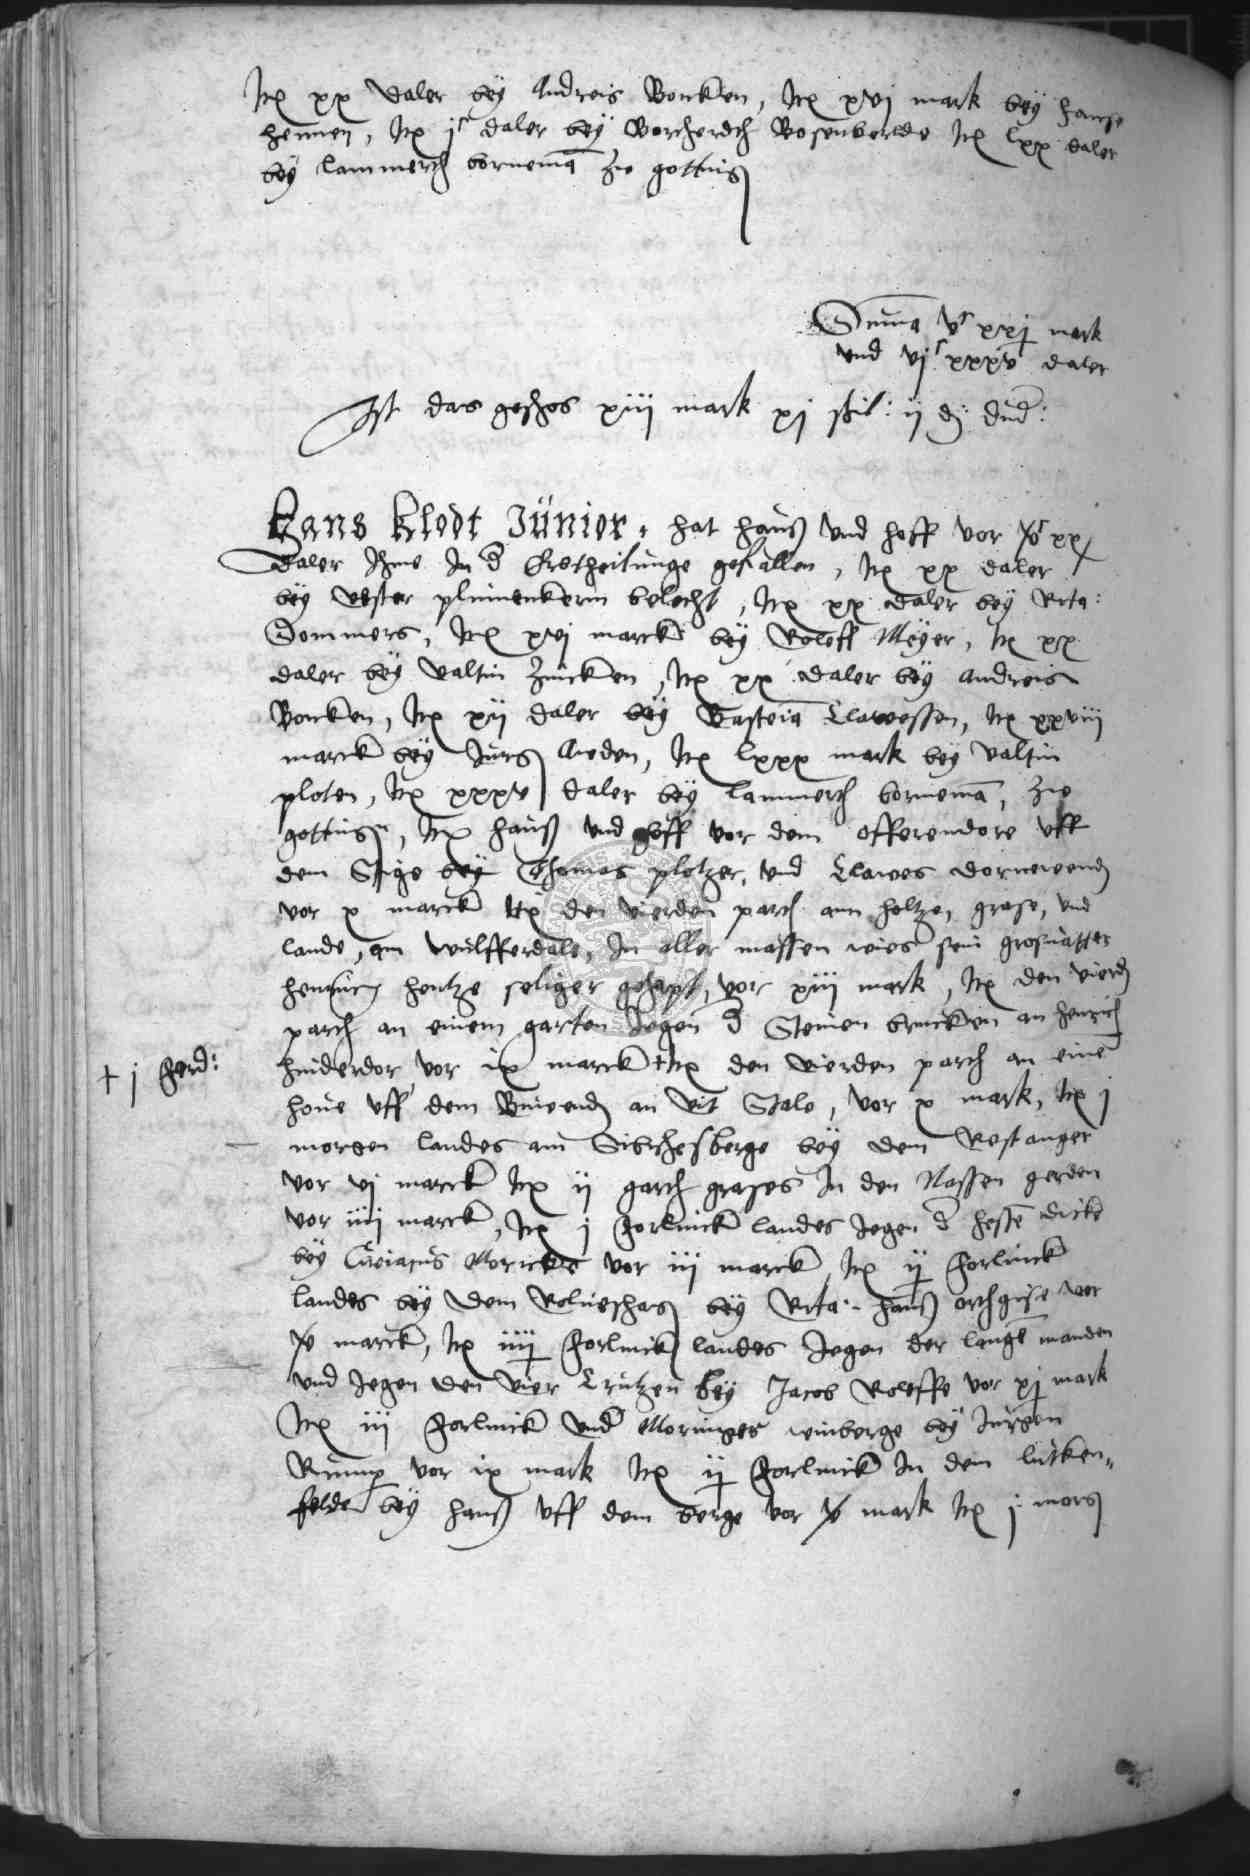 Itē xx daler bey Andreis Boncken, Itē xvj mark bey hanse
hennen, Itē jᶜ daler bey Borcherdt Bosenberde Itē lxx daler
bey lammerth bornemā zw gottings
Suma vᶜ xxj mark
vnd vjᶜ xxxv daler
Ist das geschos xiij mark xj skil: ij d:
Hans Klodt Junior, hat hauß vnd hoff vor vᶜ xx
Daler Ihme In d Erbtheilunge gefallen, Itē xx daler
bey vester belecht, Itē xx daler bey Vrba:
Dommers, Itē xvj marck bey Roloff Meyer, Itē xx
daler bey valtin Zincken, Itē xx daler bey Andreis
Boncken, Itē xij daler bey Bastcia Clawessen, Itē xxviij
marck bey Jurg Anden, Itē lxxx mark bey valtin
ploten, Itē xxxv daler bey lammerth bornemā, zw
gottings, Itē hauß vnd hoff vor dem offerendore vff
dem Stige bey Thomas plotzer, vnd Clawes dornewend
vor x marck Itē den vierden parth ann holtze, grase, vnd
lande, am wulfferdale, In aller massen wies sein grosvatter
henning hentze seliger gehapt, vor xiij mark, Itē den vierd
parth an einem garten Jegen d Steinen brucken an henrich
hinderdor vor ix marck + Itē den vierden parth an eine
+ j ferd:
houe vff dem an vit Stale, vor x mark, Itē j
morgen landes am Sibchesberge bey dem Rostanger
vor vj marck Itē ij garth grases In den Nassen gerden
vor iiij marck, Itē j forlinck landes Jegen d hesse dicke
bey Ciriacus Moricke vor iij marck Itē ij forlinck
landes bey dem bey Vrba: hanß vor
v marck, Itē iiij forlinck landes Jegen der lange wanden
vnd Jegen den vier Crutzen bey Jacob Roleffe vor xj mark
Itē iij forlinck vnd Moringer winberge bey Jurgen
Rump vor ix mark Itē ij forlinck In dem lutken-
felde bey hanß vff dem berge vor v mark Itē j morg